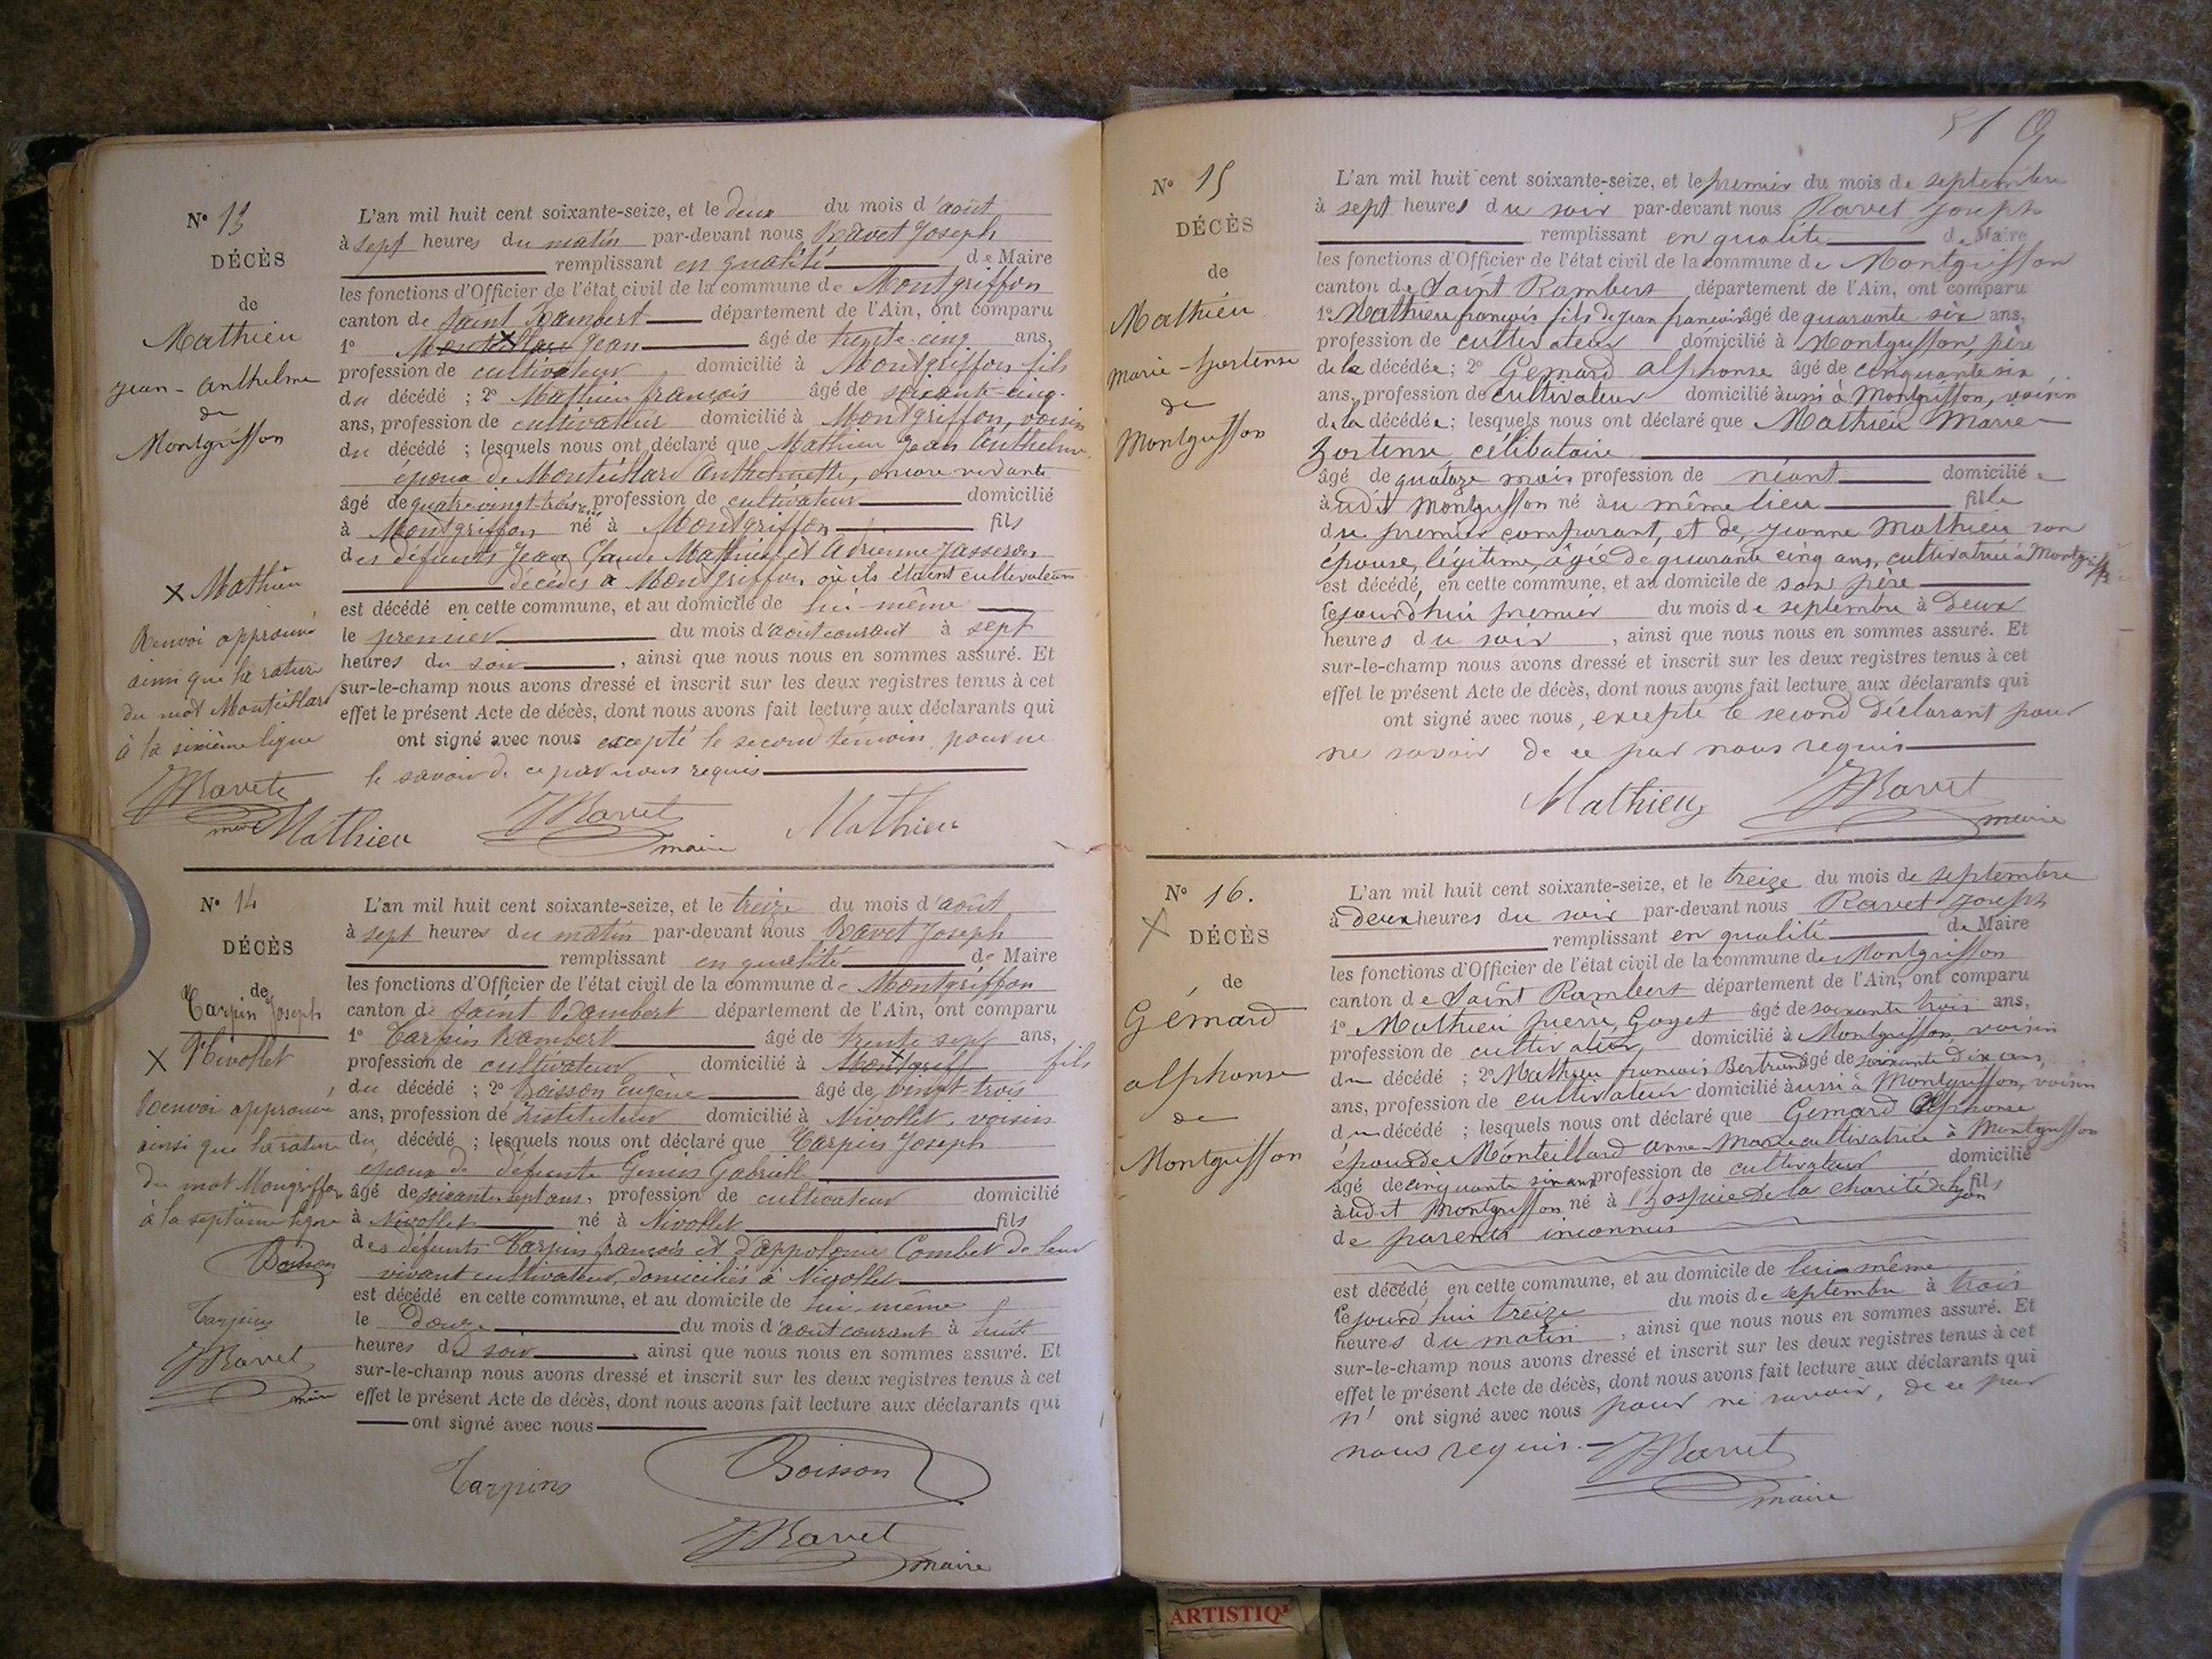 N° 13
DÉCÈS
de
Mathieu
jean-anthelme
de
Montgriffon
L'an mil huit cent soixante-seize, et le deux du mois d'août
à sept heures du matin par-devant nous Ravet Joseph
remplissant en qualité de Maire
les fonctions d'Officier de l'état civil de la commune de Montgriffon
canton de Saint Rambert département de l'Ain, ont comparu
1° Monteillard Jean âgé de trente-cinq ans,
profession de cultivateur domicilié à Montgriffon fils
du décédé ; 2° Mathieu françois âgé de soixante-cinq
ans, profession de cultivateur domicilié à Montgriffon, voisin
du décédé ; lesquels nous ont déclaré que Mathieu Jean Anthelme
époux de Monteillard Anthelmette, encore vivante
âgé de quatre-vingt-trois ans profession de cultivateur domicilié
à Montgriffon né à Montgriffon fils
des défunts Jean Claude Mathieu et Adrienne Jasseron
décédés à Montgriffon où ils étaient cultivateurs
est décédé en cette commune, et au domicile de lui-même
le premier du mois d'août courant à sept
heures du soir , ainsi que nous nous en sommes assuré. Et
sur-le-champ nous avons dressé et inscrit sur les deux registres tenus à cet
effet le présent Acte de décès, dont nous avons fait lecture aux déclarants qui
ont signé avec nous excepté le second témoin pour ne
le savoir de ce par nous requis
x Mathieu
Renvoi approuvé
ainsi que la rature
du mot Monteillard
à la sixième ligne
JRavet
maire
Mathieu
JRavet
maire
Mathieu
N° 14
DÉCÈS
de
Carpin Joseph
x Nivollet
Renvoi approuvé
ainsi que la rature
du mot Mongriffon
à la septième ligne
Boisson
Carpin
JRavet
maire
L'an mil huit cent soixante-seize, et le treize du mois d'août
à sept heures du matin par-devant nous Ravet Joseph
remplissant en qualité de Maire
les fonctions d'Officier de l'état civil de la commune de Montgriffon
canton de Saint Rambert département de l'Ain, ont comparu
1° Carpin Rambert âgé de trente sept ans,
profession de cultivateur domicilié à Montgriff fils
du décédé ; 2° Boisson Eugène âgé de vingt-trois
ans, profession de Instituteur domicilié à Nivollet, voisin
du décédé ; lesquels nous ont déclaré que Carpin Joseph
époux de défunte Genin Gabrielle
âgé de soixante-sept ans, profession de cultivateur domicilié
à Nivollet né à Nivollet fils
des défunts Carpin françois et d'appolonie Combet de leur
vivant cultivateur, domiciliés à Nivollet
est décédé en cette commune, et au domicile de lui-même
le Douze du mois d'août courant à huit
heures du soir , ainsi que nous nous en sommes assuré. Et
sur-le-champ nous avons dressé et inscrit sur les deux registres tenus à cet
effet le présent Acte de décès, dont nous avons fait lecture aux déclarants qui
ont signé avec nous
Carpin
Boisson
JRavet
maire
N° 15
DÉCÈS
de
Mathieu
marie-hortense
de
Montgriffon
L'an mil huit cent soixante-seize, et le premier du mois de septembre
à sept heures du soir par-devant nous Ravet Joseph
remplissant en qualité de Maire
les fonctions d'Officier de l'état civil de la commune de Montgriffon
canton de Saint Rambert département de l'Ain, ont comparu
1° Mathieu françois fils de jean françois âgé de quarante six ans,
profession de cultivateur domicilié à Montgriffon, père
de la décédée ; 2° Gemard alphonse âgé de cinquante six
ans, profession de cultivateur domicilié aussi à Montgriffon, voisin
de la décédée ; lesquels nous ont déclaré que Mathieu Marie
hortense célibataire
âgé de quatorze mois profession de néant domiciliée
audit Montgriffon né au même lieu fille
du premier comparant, et de, jeanne Mathieu son
épouse, légitime, âgée de quarante cinq ans, cultivatrice à Montgriffon
est décédé en cette commune, et au domicile de son père
cejourd'hui premier du mois de septembre à deux
heures du soir , ainsi que nous nous en sommes assuré. Et
sur-le-champ nous avons dressé et inscrit sur les deux registres tenus à cet
effet le présent Acte de décès, dont nous avons fait lecture aux déclarants qui
ont signé avec nous, excepté le second déclarant pour
ne savoir de ce par nous requis
Mathieu
JRavet
maire
N° 16.
x
DÉCÈS
de
Gémard
alphonse
de
Montgriffon
L'an mil huit cent soixante-seize, et le treize du mois de septembre
à deux heures du soir par-devant nous Ravet Joseph
remplissant en qualité de Maire
les fonctions d'Officier de l'état civil de la commune de Montgriffon
canton de Saint Rambert département de l'Ain, ont comparu
1° Mathieu pierre Goyet âgé de soixante trois ans,
profession de cultivateur domicilié à Montgriffon, voisin
du décédé ; 2° Mathieu françois Bertrand âgé de soixante dix ans
ans, profession de cultivateur domicilié aussi à Montgriffon, voisin
du décédé ; lesquels nous ont déclaré que Gemard Alphonse
époux de Monteillard anne-Marie cultivatrice à Montgriffon
âgé de cinquante six ans profession de cultivateur domicilié
audit Montgriffon né à l'hospice de la charité de Lyon fils
de parents inconnus
est décédé en cette commune, et au domicile de lui-même
cejourd'hui treize du mois de septembre à trois
heures du matin , ainsi que nous nous en sommes assuré. Et
sur-le-champ nous avons dressé et inscrit sur les deux registres tenus à cet
effet le présent Acte de décès, dont nous avons fait lecture aux déclarants qui
n' ont signé avec nous pour ne savoir, de ce par
nous requis.
JRavet
maire
ARTISTIQ